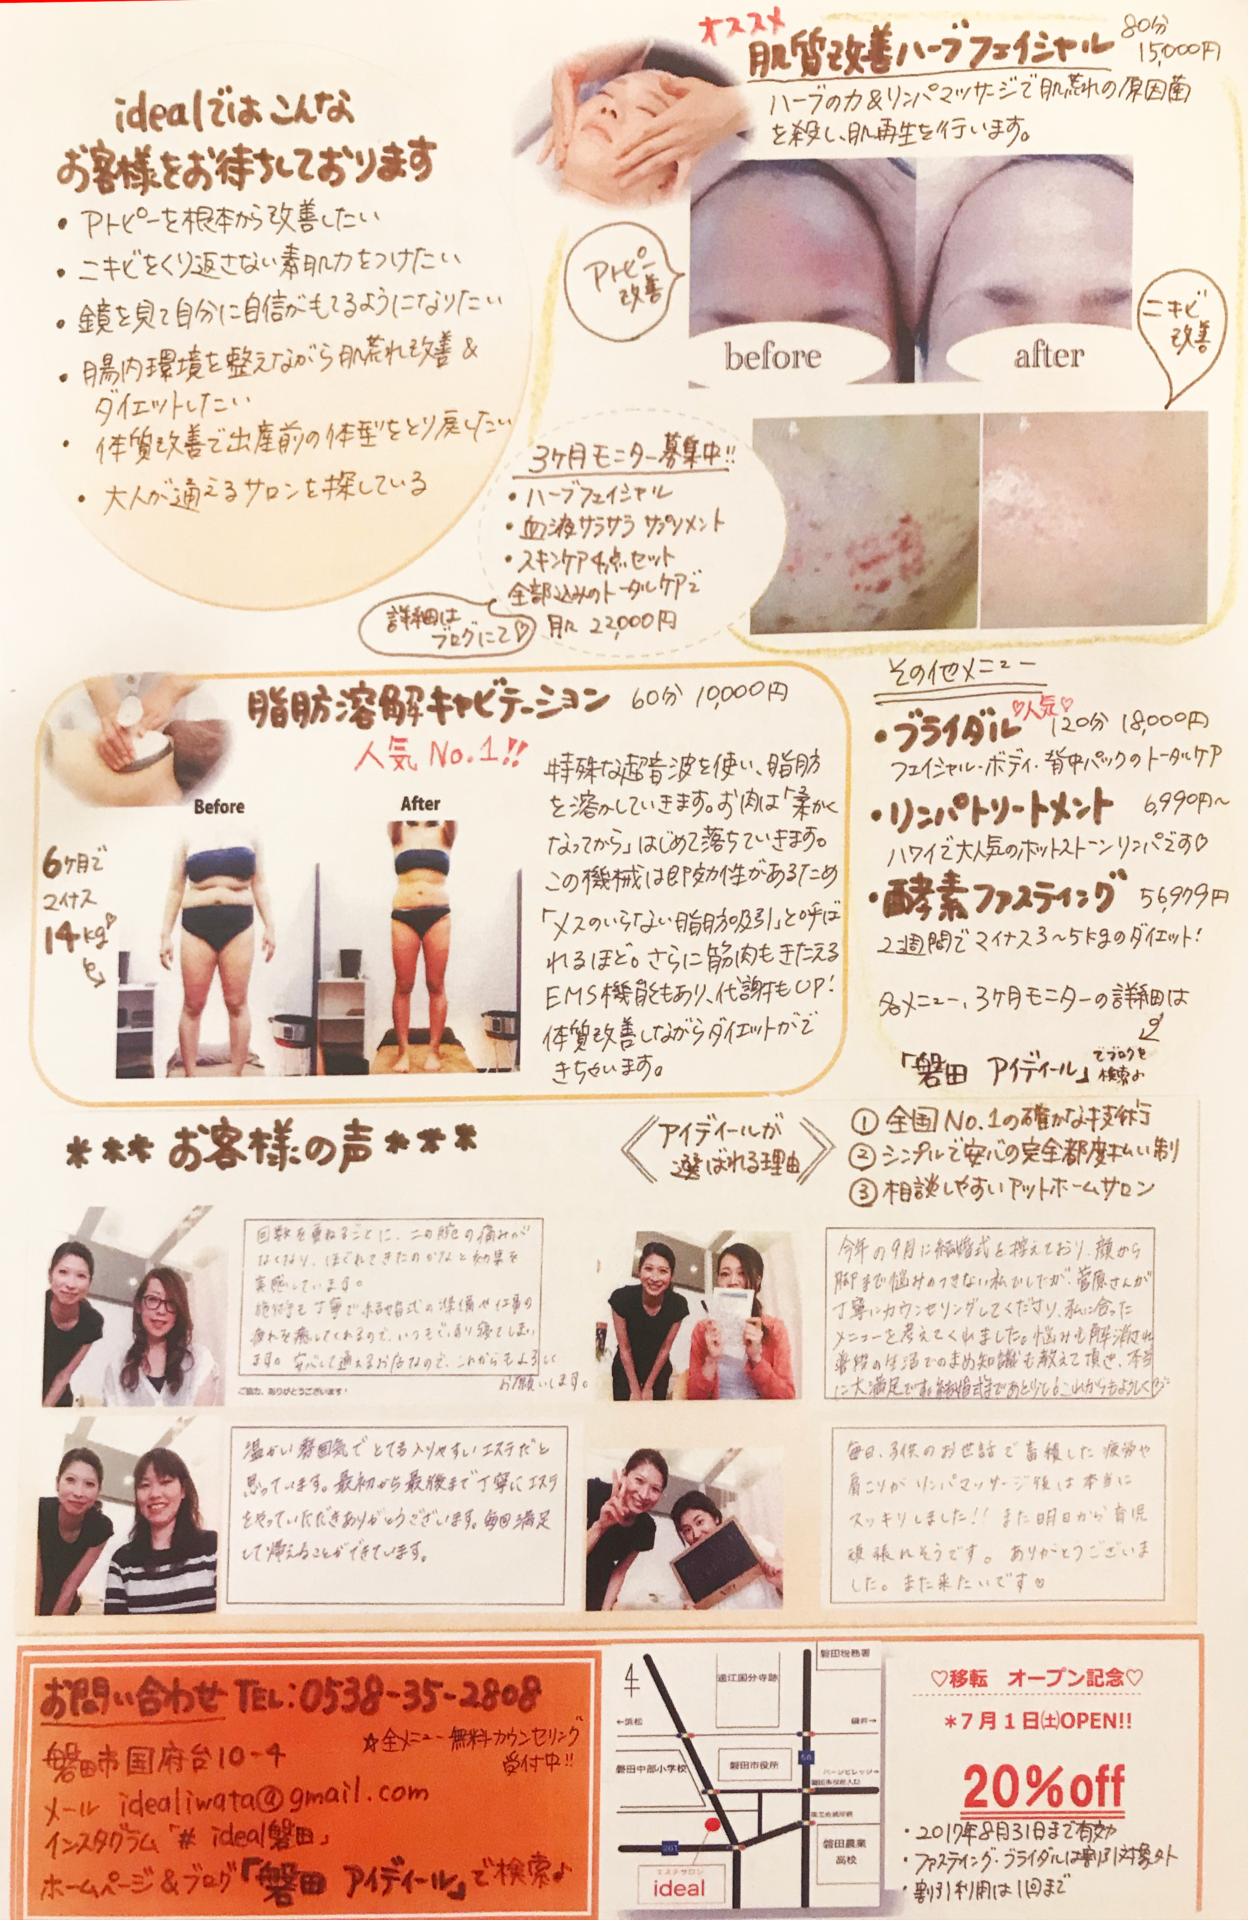 idealではこんな
お客様をお待ちしております
・アトピーを根本から改善したい
・ニキビをくり返さない素肌力をつけたい
・鏡を見て自分に自信がもてるようになりたい
・腸内環境を整えながら肌荒れ改善&
ダイエットしたい
・体質改善で出産前の体型をとり戻したい
・大人が通えるサロンを探している
オススメ
肌質改善ハーブフェイシャル
80分
15,000円
ハーブの力&リンパマッサージで肌荒れの原因菌
を殺し、肌再生を行います。
アトピー
改善
before
after
ニキビ
改善
3ヶ月モニター募集中!!
・ハーブフェイシャル
・血液サラサラ サプリメント
・スキンケア4点セット
全部込みのトータルケアで
月 22,000円
詳細は
ブログにて♡
脂肪溶解キャビテーション 60分 10,000円
人気 No.1!!
Before
After
6ヶ月で
マイナス
14kg
特殊な超音波を使い、脂肪
を溶かしていきます。お肉は「柔かく
なってから」はじめて落ちていきます。
この機械は即効性があるため
「メスのいらない脂肪吸引」と呼ば
れるほど。さらに筋肉もきたえる
EMS機能もあり、代謝もUP!
体質改善しながらダイエットがで
きちゃいます。
その他メニュー
・ブライダル ♡人気♡ 120分 18,000円
フェイシャル・ボディ・背中パックのトータルケア
・リンパトリートメント 6,990円〜
ハワイで大人気のホットストーンリンパです♡
・酵素ファスティング 56,979円
2週間でマイナス3〜5kgのダイエット!
各メニュー、3ヶ月モニターの詳細は
「磐田 アイディール」でブログを
検索♪
*** お客様の声 ***
アイディールが
選ばれる理由
① 全国No.1の確かな技術
② シンプルで安心の完全都度払い制
③ 相談しやすいアットホームサロン
回数を重ねるごとに、二の腕の痛みが
なくなり、ほぐれてきたのかなと効果を
実感しています。
施術も丁寧で結婚式の準備や仕事の
疲れを癒してくれるので、いつもぐっすり寝てしまい
ます。安心して通えるお店なので、これからもよろしく
お願いします。
ご協力、ありがとうございます!
今年の9月に結婚式を控えており、顔から
脚まで悩みのつきない私でしたが、菅原さんが
丁寧にカウンセリングしてくださり、私に合った
メニューを考えてくれました。悩みも解消され
普段の生活でのまめ知識も教えて頂き、本当
に大満足です。結婚式まであと少し、これからもよろしく
温かい雰囲気でとても入りやすいエステだと
思っています。最初から最後まで丁寧にエステ
をやっていただきありがとうございます。毎回満足
して帰えることができています。
毎日、子供のお世話で蓄積した疲労や
肩こりがリンパマッサージ後は本当に
スッキリしました!! また明日から育児
頑張れそうです。ありがとうございま
した。また来たいです♡
お問い合わせ TEL:0538-35-2808
☆全メニュー無料カウンセリング
受付中!!
磐田市国府台10-4
メール idealiwata@gmail.com
インスタグラム「# ideal磐田」
ホームページ&ブログ「磐田 アイディール」で検索♪
磐田税務署
遠江国分寺跡
←浜松
袋井→
磐田中部小学校
磐田市役所
56
ららぽーと
磐田農業
高校
261
エステサロン
ideal
♡移転 オープン記念♡
*7月1日㈯OPEN!!
20%off
・2017年8月31日まで有効
・ファスティング・ブライダルは割引対象外
・割引利用は1回まで